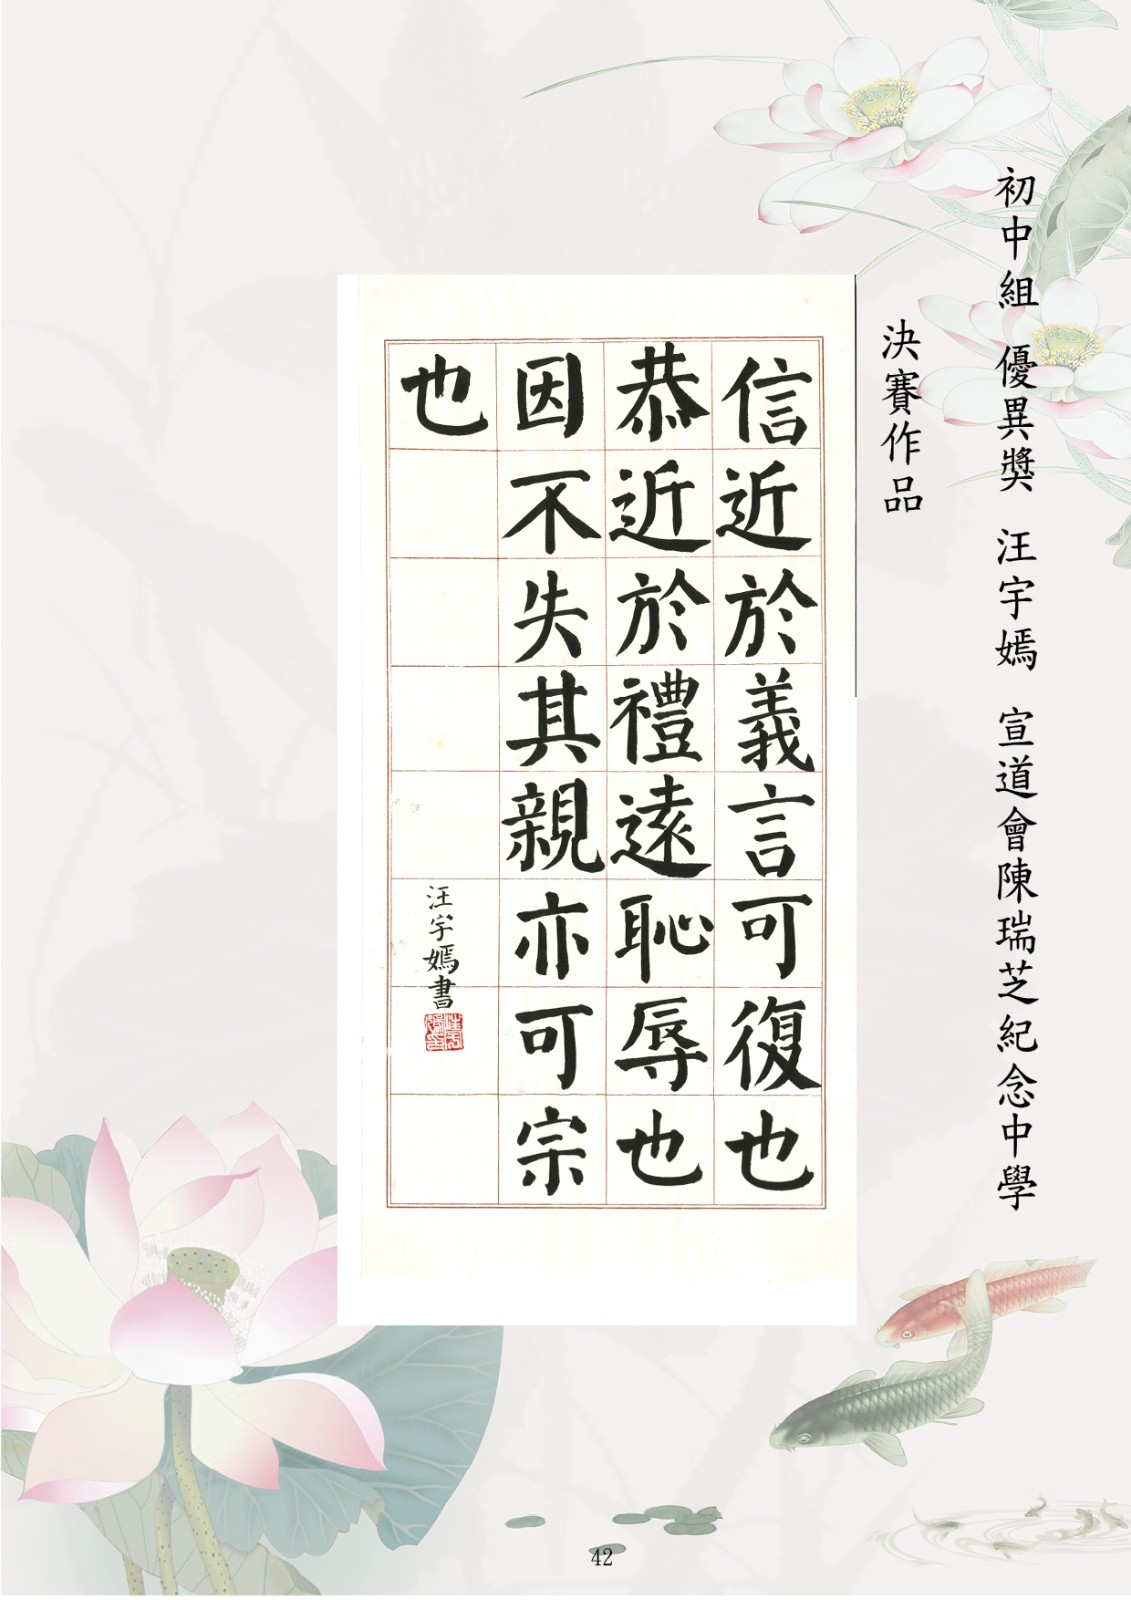 初中組 優異獎 汪宇嫣 宣道會陳瑞芝紀念中學
決賽作品
信近於義言可復也
恭近於禮遠恥辱也
因不失其親亦可宗
也
汪宇嫣書
42